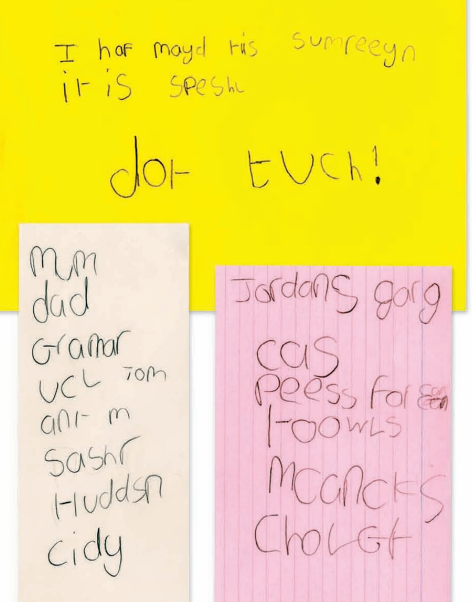 I haf mayd tis sumreeyn
it is speshl
dot tuch!
mum
dad
Gramar
ucL Tom
ant m
Sashr
Huddsn
cidy
Jordans garg
cas
Peess For
toowls
mcancks
ChoLGt